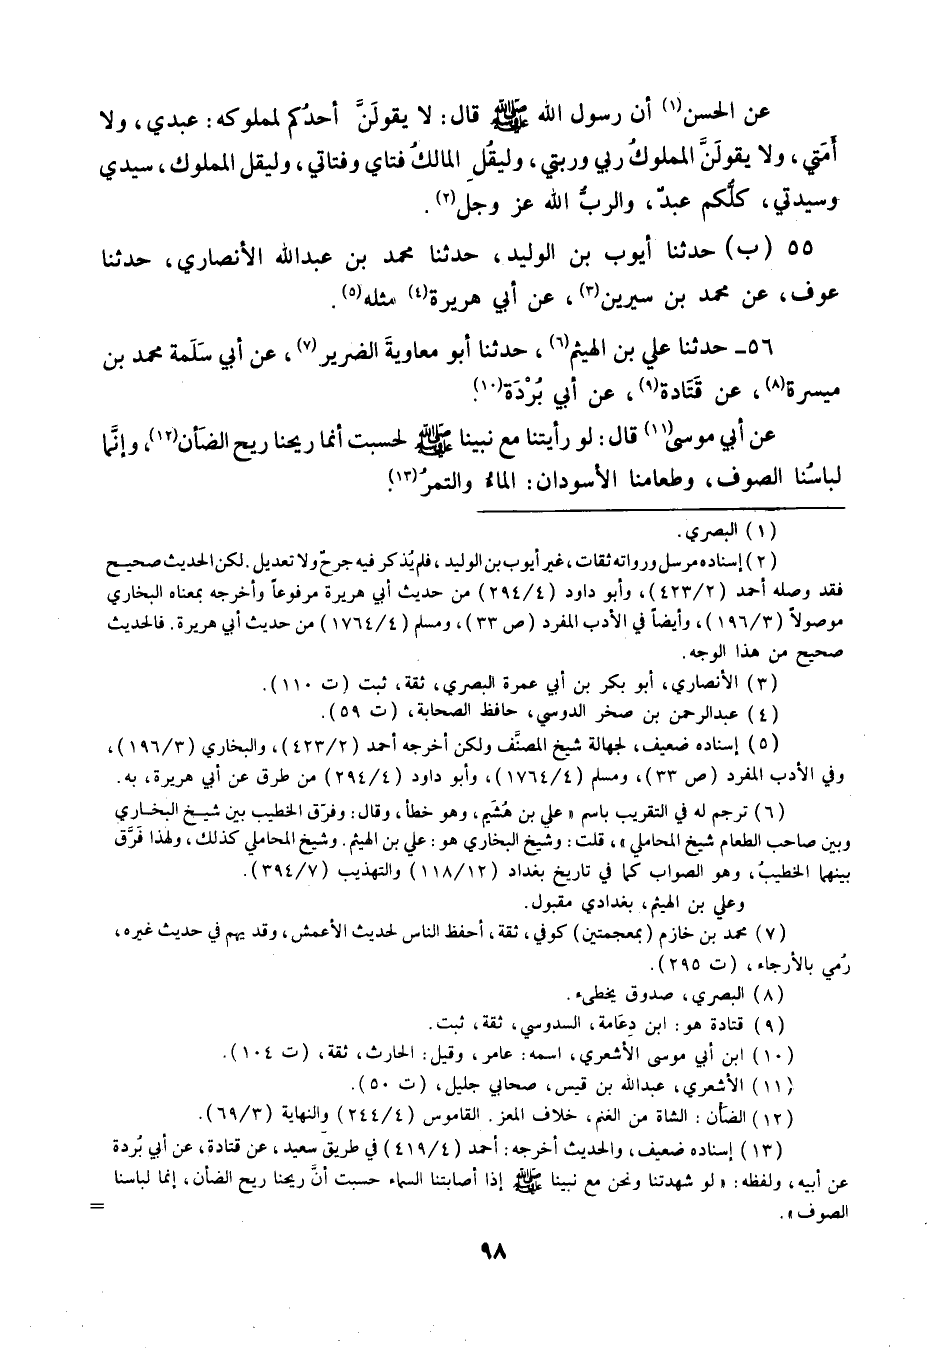 عن الحسن(١) أن رسول الله ﷺ قال: لا يقولَنَّ أحدُكم لمملوكه: عبدي، ولا
أَمَتي، ولا يقولَنَّ المملوكُ ربي وربتي، وليقُلِ المالكُ فتاي وفتاتي، وليقل المملوك، سيدي
وسيدتي، كلُّكم عبدٌ، والربُّ الله عز وجل(٢).
٥٥ (ب) حدثنا أيوب بن الوليد، حدثنا محمد بن عبدالله الأنصاري، حدثنا
عوف، عن محمد بن سيرين(٣)، عن أبي هريرة(٤) مثله(٥).
٥٦- حدثنا علي بن الهيثم(٦)، حدثنا أبو معاويةَ الضرير(٧)، عن أبي سَلَمة محمد بن
ميسرة(٨)، عن قَتَادة(٩)، عن أبي بُرْدَة(١٠).
عن أبي موسى(١١) قال: لو رأيتنا مع نبينا ﷺ لحسبت أنما ريحنا ريح الضَأن(١٢)، وإنَّما
لباسُنا الصوف، وطعامنا الأسودان: الماءُ والتمرُ(١٣).
(١) البصري.
(٢) إسناده مرسل ورواته ثقات، غير أيوب بن الوليد، فلم يُذكر فيه جرحٌ ولا تعديل. لكن الحديث صحيح
فقد وصله أحمد (٤٢٣/٢)، وأبو داود (٢٩٤/٤) من حديث أبي هريرة مرفوعاً وأخرجه بمعناه البخاري
موصولاً (١٩٦/٣)، وأيضاً في الأدب المفرد (ص ٣٣)، ومسلم (١٧٦٤/٤) من حديث أبي هريرة. فالحديث
صحيح من هذا الوجه.
(٣) الأنصاري، أبو بكر بن أبي عمرة البصري، ثقة، ثبت (ت ١١٠).
(٤) عبدالرحمن بن صخر الدوسي، حافظ الصحابة، (ت ٥٩).
(٥) إسناده ضعيف، لجهالة شيخ المصنَّف ولكن أخرجه أحمد (٤٢٣/٢)، والبخاري (١٩٦/٣)،
وفي الأدب المفرد (ص ٣٣)، ومسلم (١٧٦٤/٤)، وأبو داود (٢٩٤/٤) من طرق عن أبي هريرة، به.
(٦) ترجم له في التقريب باسم «علي بن هُشَيم، وهو خطأ، وقال: وفرّق الخطيب بين شيخ البخاري
وبين صاحب الطعام شيخ المحاملي»، قلت: وشيخ البخاري هو: علي بن الهيثم. وشيخ المحاملي كذلك، ولهذا فَرَّق
بينهما الخطيبُ، وهو الصواب كما في تاريخ بغداد (١١٨/١٢) والتهذيب (٣٩٤/٧).
وعلي بن الهيثم، بغدادي مقبول.
(٧) محمد بن خازم (بمعجمتين) كوفي، ثقة، أحفظ الناس لحديث الأعمش، وقد يهم في حديث غيره،
رُمي بالأرجاء، (ت ٢٩٥).
(٨) البصري، صدوق يخطىء.
(٩) قتادة هو: ابن دِعَامة، السدوسي، ثقة، ثبت.
(١٠) ابن أبي موسى الأشعري، اسمه: عامر، وقيل: الحارث، ثقة، (ت ١٠٤).
(١١) الأشعري، عبدالله بن قيس، صحابي جليل، (ت ٥٠).
(١٢) الضأن: الشاة من الغنم، خلاف المعز. القاموس (٢٤٤/٤) والنهاية (٦٩/٣).
(١٣) إسناده ضعيف، والحديث أخرجه: أحمد (٤١٩/٤) في طريق سعيد، عن قتادة، عن أبي بُردة
عن أبيه، ولفظه: «لو شهدتنا ونحن مع نبينا ﷺ إذا أصابتنا السماء حسبت أنَّ ريحنا ريح الضأن، إنما لباسنا
الصوف».
=
٩٨